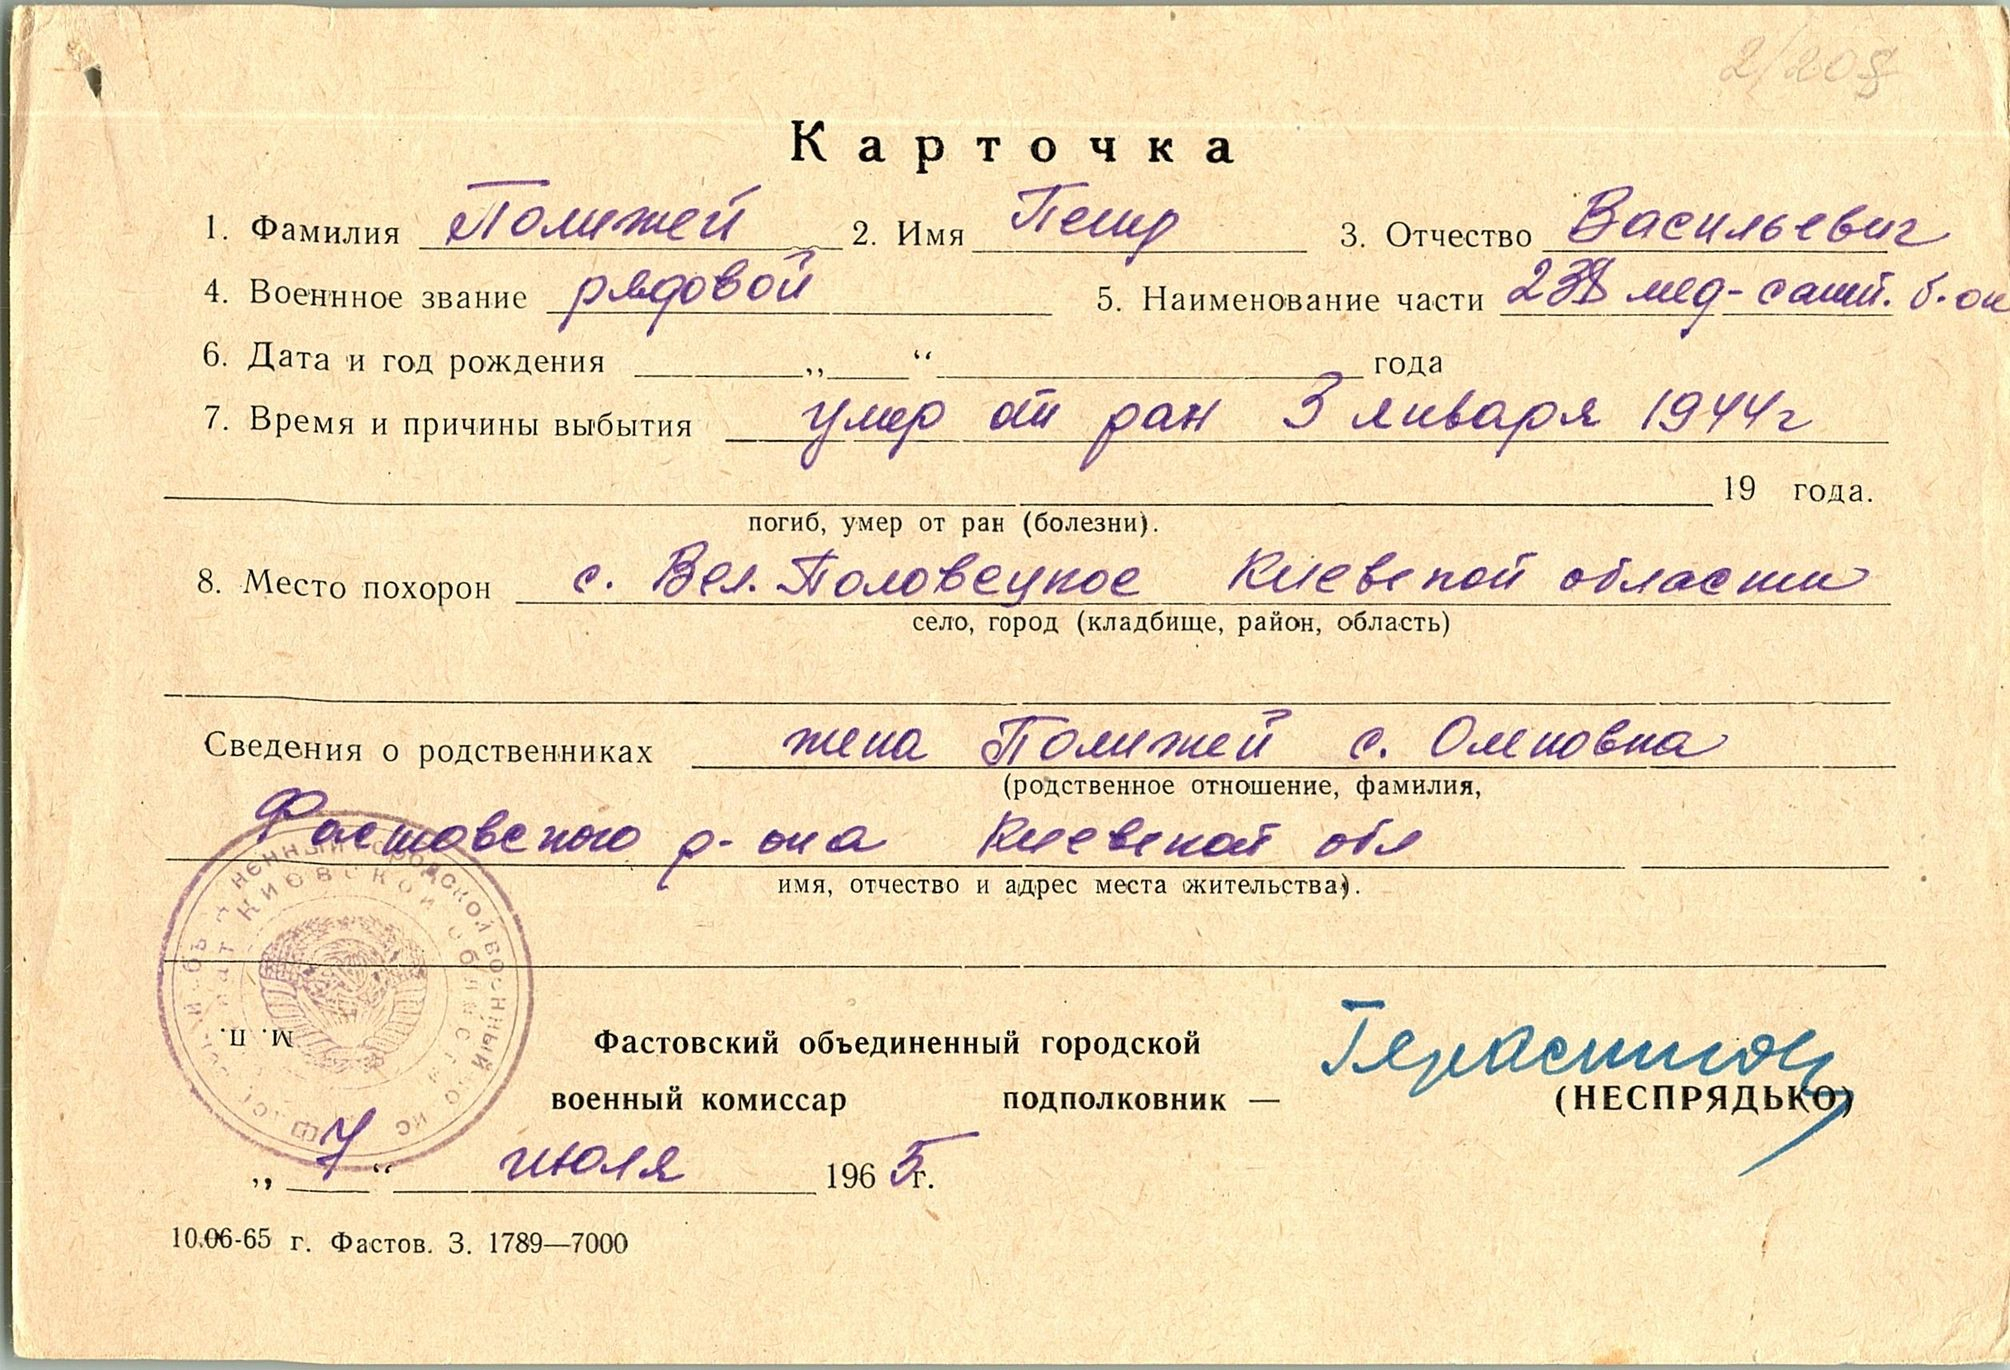 2/208
Карточка
1. Фамилия Полижей 2. Имя Петр 3. Отчество Васильевич
4. Военнное звание рядовой 5. Наименование части мед-сан. б-он
6. Дата и год рождения „ “ года
7. Время и причины выбытия умер от ран 3 января 1944 г
19 года.
погиб, умер от ран (болезни).
8. Место похорон с. Вел. Половецкое Киевской области
село, город (кладбище, район, область)
Сведения о родственниках жена Полижей с.
(родственное отношение, фамилия,
Фастовского р-она Киевской обл
имя, отчество и адрес места жительства).
М. П.
Фастовский объединенный городской
военный комиссар подполковник —
(НЕСПРЯДЬКО)
„ 7 “ июля 1965 г.
10.06-65 г. Фастов. З. 1789—7000